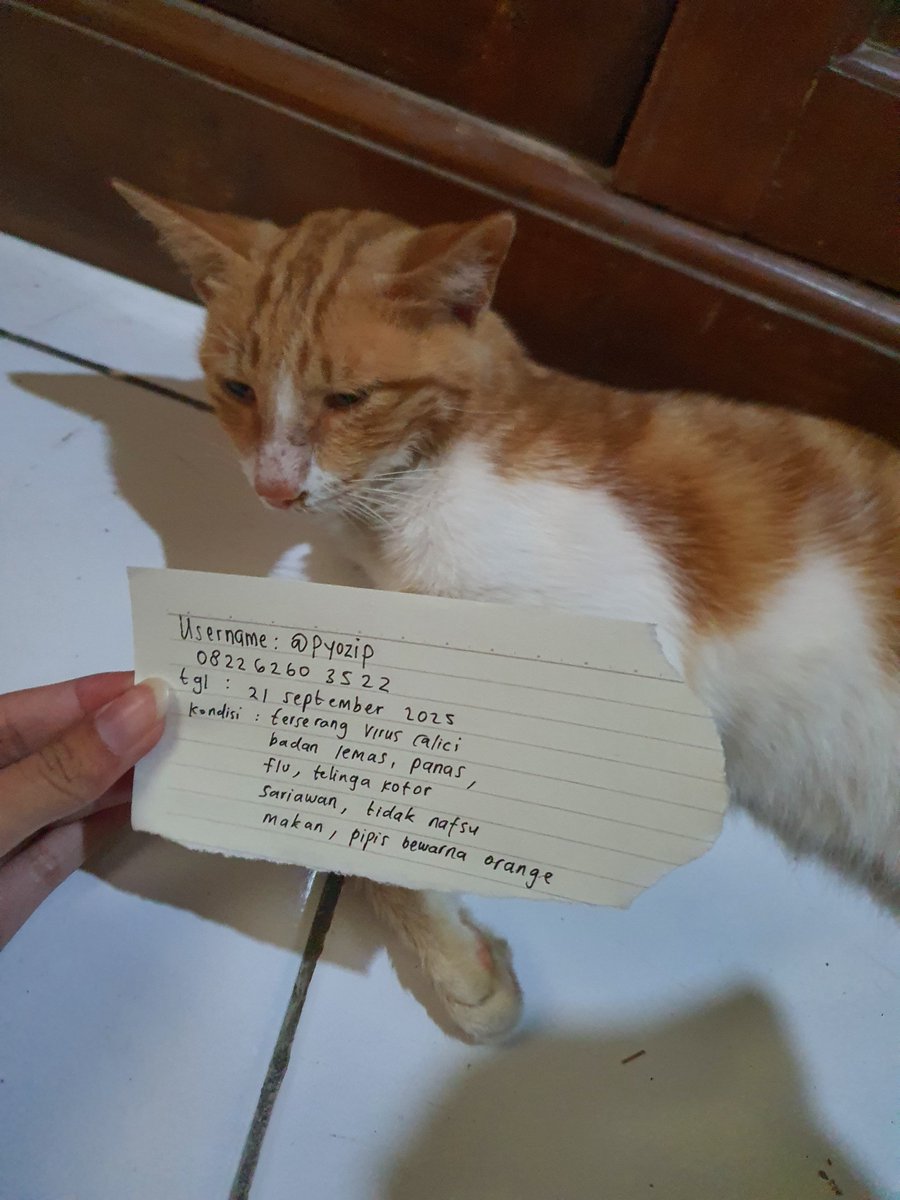 Username: @pyozip
0822 6260 3522
tgl : 21 september 2025
kondisi : terserang virus calici
badan lemas, panas,
flu, telinga kotor
sariawan, tidak nafsu
makan, pipis bewarna orange